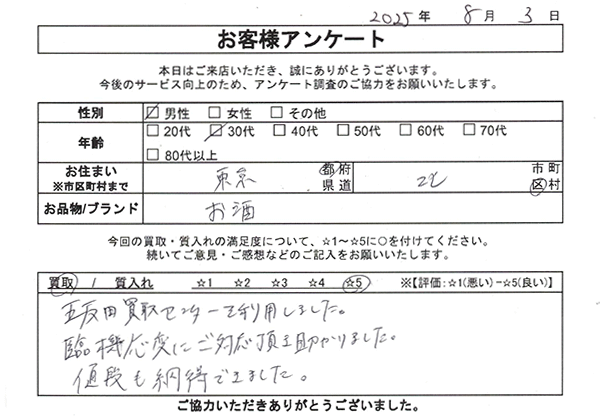 2025 年 8 月 3 日
お客様アンケート
本日はご来店いただき、誠にありがとうございます。
今後のサービス向上のため、アンケート調査のご協力をお願いいたします。
性別 ☑ 男性 □ 女性 □ その他
年齢 □ 20代 ☑ 30代 □ 40代 □ 50代 □ 60代 □ 70代
□ 80代以上
お住まい 東京 都府 市町
※市区町村まで 県道 区村
お品物/ブランド お酒
今回の買取・質入れの満足度について、☆1~☆5に○を付けてください。
続いてご意見・ご感想などのご記入をお願いいたします。
買取 / 質入れ ☆1 ☆2 ☆3 ☆4 ☆5 ※【評価:☆1(悪い)-☆5(良い)】
五反田買取センターを利用しました。
臨機応変にご対応頂き助かりました。
値段も納得できました。
ご協力いただきありがとうございました。